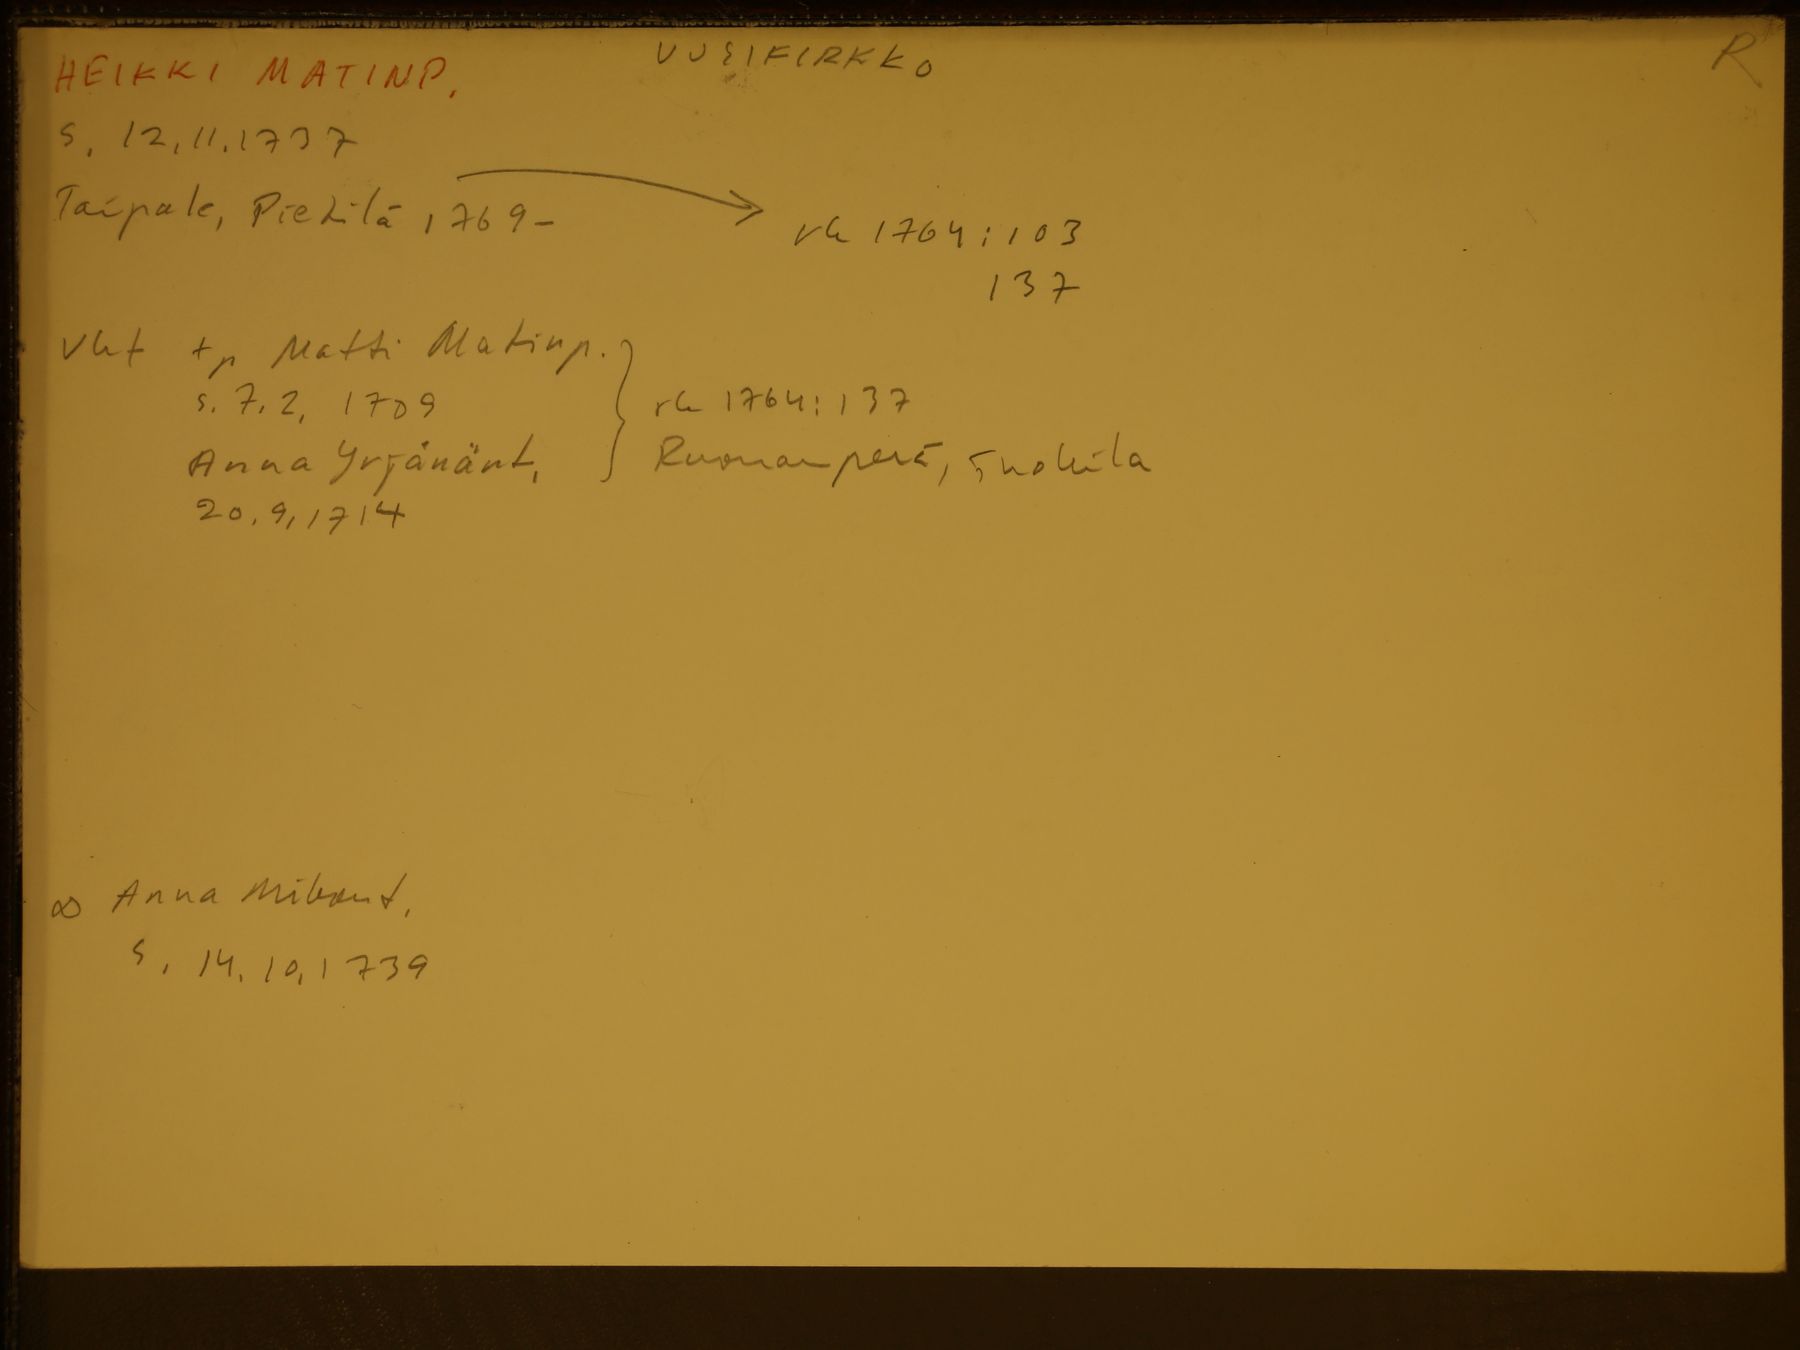 HEIKKI MATINP. UUSIKIRKKO R
s. 12.11.1737
Taipale, Pietilä 1769-
rk 1764:103
137
Vht tp Matti Matinp.
s. 7.2. 1709 rk 1764:137
Anna Yrjänänt. Ruonanperä,
20.9.1714
∞ Anna Mikont.
s. 14.10.1739